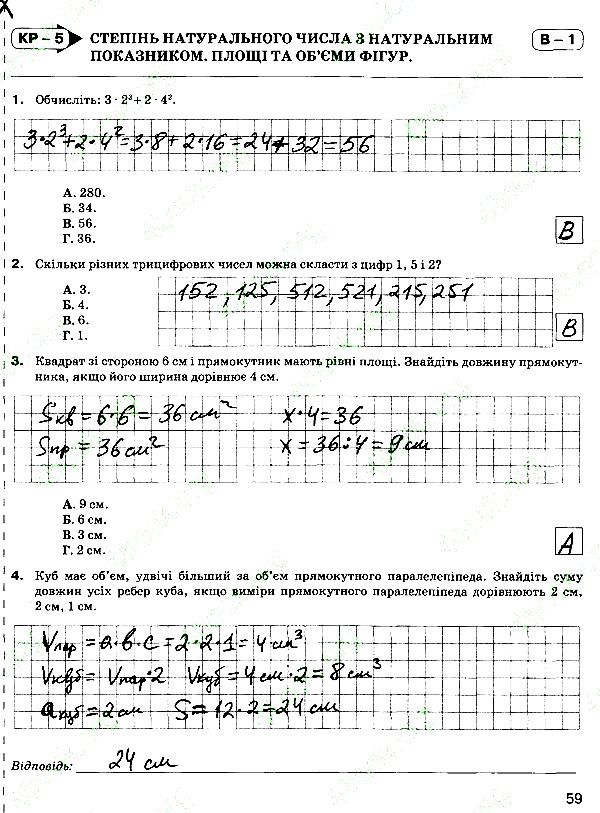 КР – 5
СТЕПІНЬ НАТУРАЛЬНОГО ЧИСЛА З НАТУРАЛЬНИМ
ПОКАЗНИКОМ. ПЛОЩІ ТА ОБ'ЄМИ ФІГУР.
В – 1
1. Обчисліть: 3 · 2³ + 2 · 4².
3·2³+2·4²=3·8+2·16=24+32=56
А. 280.
Б. 34.
В. 56.
Г. 36.
В
2. Скільки різних трицифрових чисел можна скласти з цифр 1, 5 і 2?
А. 3.
Б. 4.
В. 6.
Г. 1.
152, 125, 512, 521, 215, 251
В
3. Квадрат зі стороною 6 см і прямокутник мають рівні площі. Знайдіть довжину прямокут-
ника, якщо його ширина дорівнює 4 см.
Sкв = 6·6 = 36 см² x·4=36
Sпр = 36 см² x = 36:4 = 9 см
А. 9 см.
Б. 6 см.
В. 3 см.
Г. 2 см.
А
4. Куб має об'єм, удвічі більший за об'єм прямокутного паралелепіпеда. Знайдіть суму
довжин усіх ребер куба, якщо виміри прямокутного паралелепіпеда дорівнюють 2 см,
2 см, 1 см.
Vпар = а·в·с = 2·2·1 = 4 см³
Vкуб = Vпар·2 Vкуб = 4 см·2 = 8 см³
aкуб = 2 см S = 12·2 = 24 см
Відповідь: 24 см
59